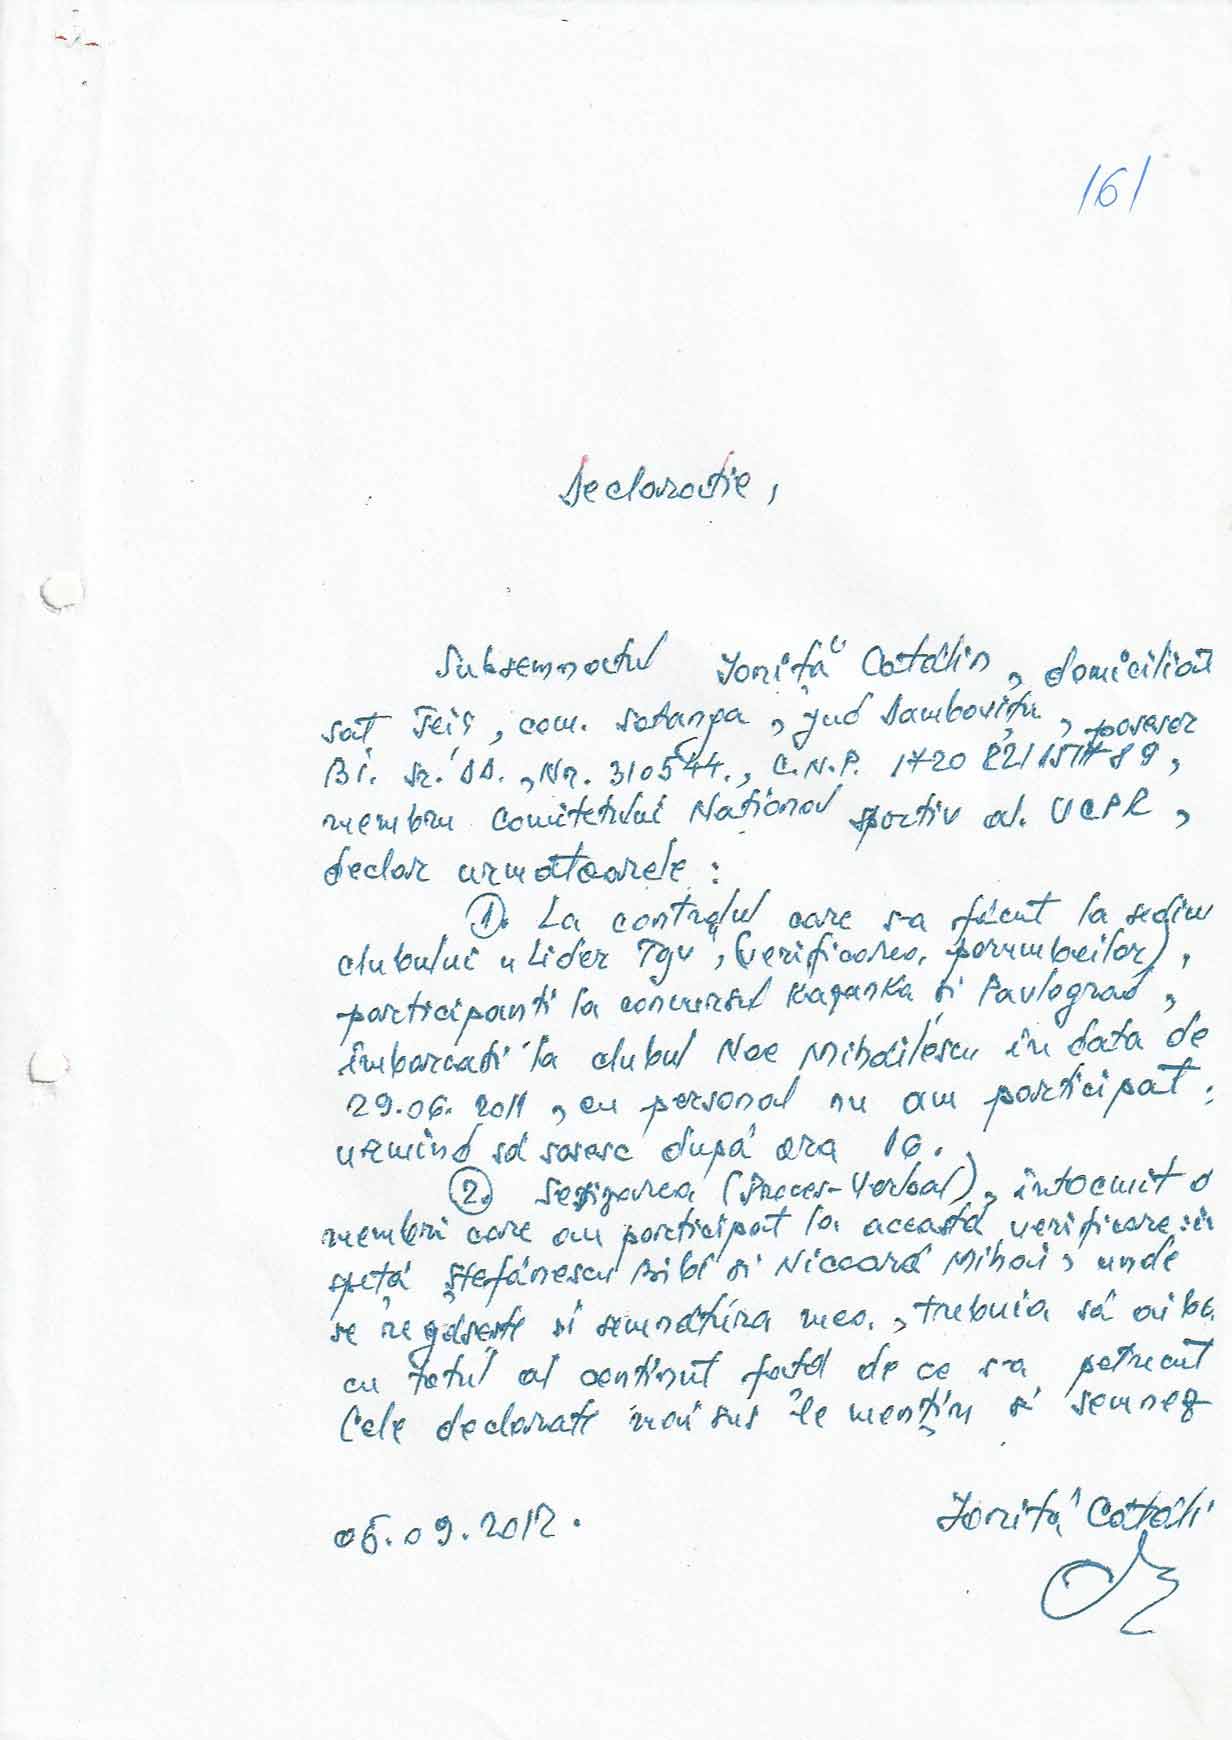 161
Declaratie,
Subsemnatul Ioniţă Cătălin, domiciliat
sat Teiş, com. Sotanga, jud Dambovița, posesor
Bi. sr. DD., Nr. 310544., C.N.P. 1720
membru Comitetului National sportiv al. UCPR,
declar urmatoarele:
1. La controlul care s-a făcut la sediu
clubului "Lider Tgv, (verificarea, porumbeilor),
participanti la concursul Kaganka si Pavlograd,
îmbarcati la clubul Noe Mihăilescu în data de
29.06.2011, eu personal nu am participat;
urmind să sosesc după ora 16.
2. Sesizarea (Proces-Verbal), întocmit d
membri care au participat la această verificare: în
speţă Ştefănescu Bibi si Nicoară Mihai, unde
se regăseste si semnătúra mea, trebuia să aibe
cu totul al continut fată de ce s-a petrecut
Cele declarate mai sus le menţin si semnez
05.09.2012.
Ionită Cătăli